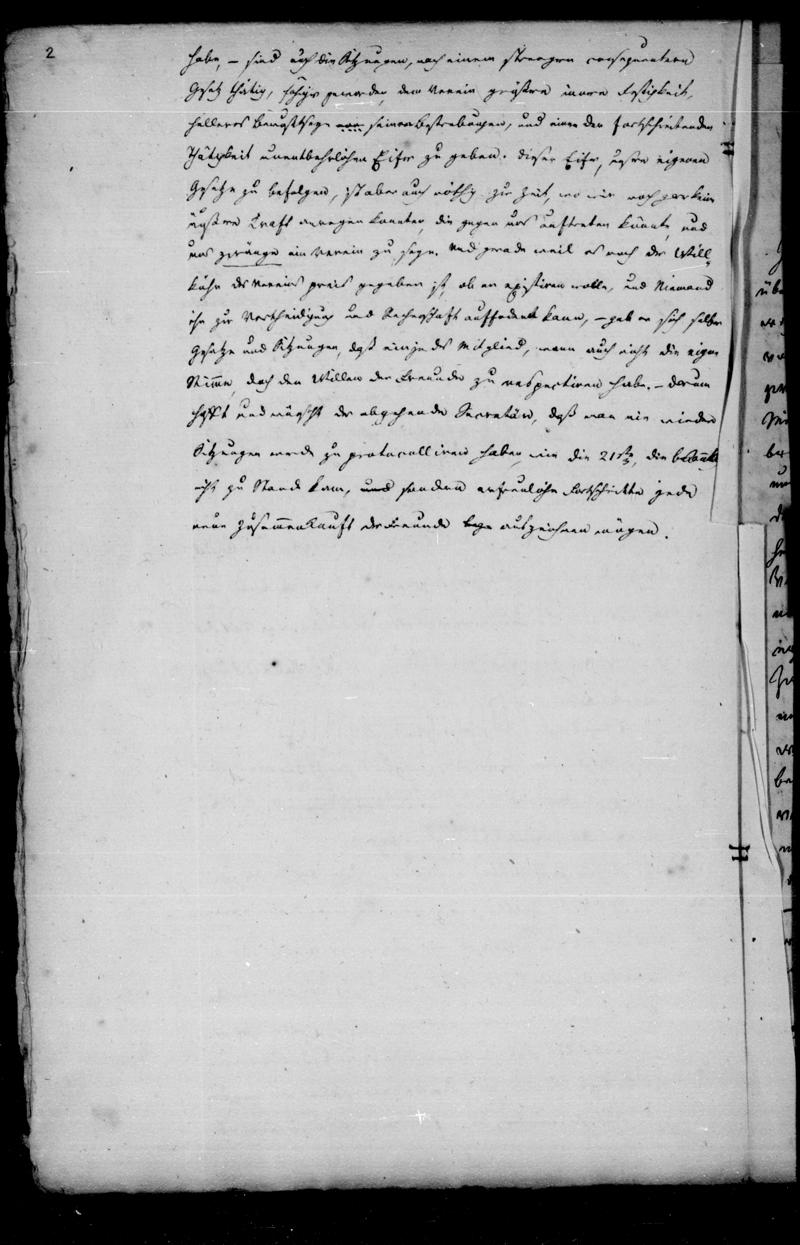 2
habe, – sind auch die Sitzungen, nach einem strengern consequentern
Gesetz thätig, fähiger geworden, dem Verein größere innere Festigkeit,
helleres Bewußtseyn seiner Bestrebungen, und einen der fortschreitenden
Thätigkeit unentbehrlichen Eifer zu geben. Dieser Eifer, unsre eigenen
Gesetze zu befolgen, ist aber auch nöthig zur Zeit, wo wir noch gar keine
äußere Kraft anregen konnten, die gegen uns auftreten könnte, und
uns zwänge ein Verein zu seyn. Und grade weil es noch der Will-
kühr des Vereins preis gegeben ist, ob er existiren wolle, und Niemand
ihn zur Vertheidigung und Rechenschaft auffodern kann, – gab er sich selber
Gesetze und Sitzungen, daß ein jedes Mitglied, wenn auch nicht die eigne
Stimme, doch den Willen der Freunde zu respectiren habe. – Darum
hofft und wünscht der abgehende Secretär, daß man nie wieder
Sitzungen werde zu protocolliren haben, wie die 21ste, die
nicht zu Stande kam, sondern erfreuliche Fortschritte jede
neue Zusammenkunft der Freunde auszeichnen mögen.